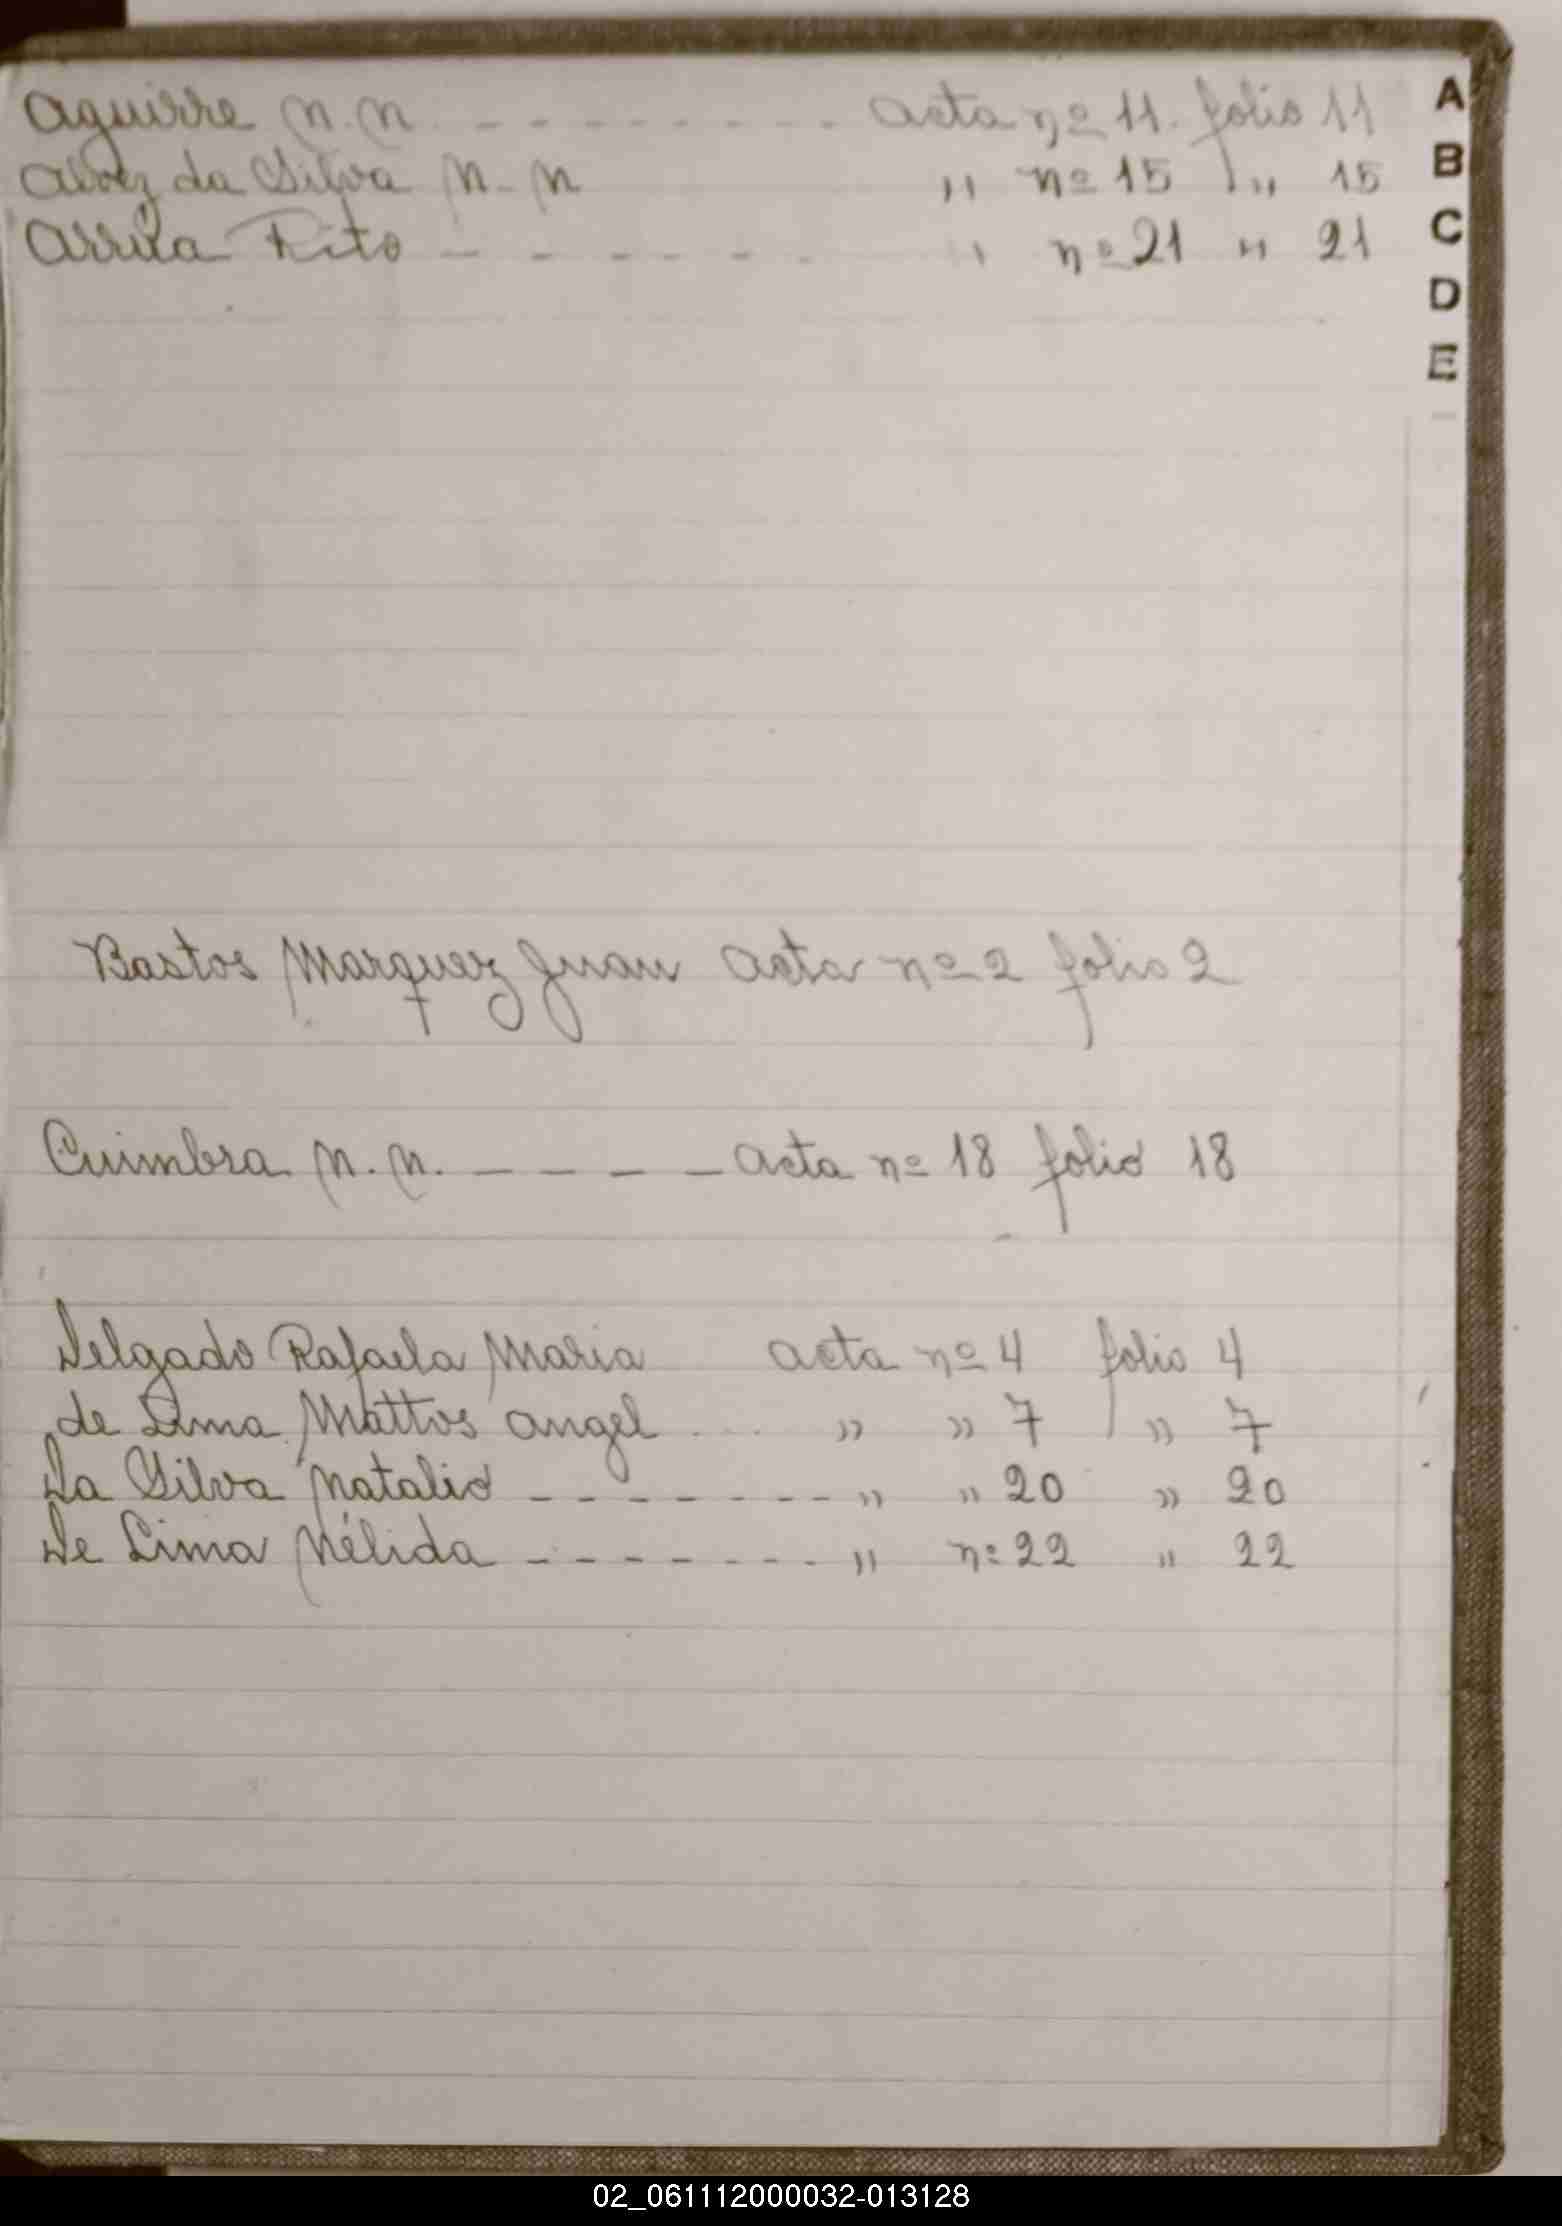 Aguirre N. N. - - - - - - - - - Acta nº 11. folio 11
Alvez da Silva N - N " nº 15 " 15
Tito - - - - - - " nº 21 " 21
A
B
C
D
E
Bastos Marquez Juan Acta nº 2 folio 2
Cuimbra N. N. - - - - Acta nº 18 folio 18
Delgado Rafaela Maria Acta nº 4 folio 4
de Lima Mattos Angel " " 7 " 7
Da Silva Natalio - - - - - - - " " 20 " 20
De Lima Nélida - - - - - - - " nº 22 " 22
02_061112000032-013128